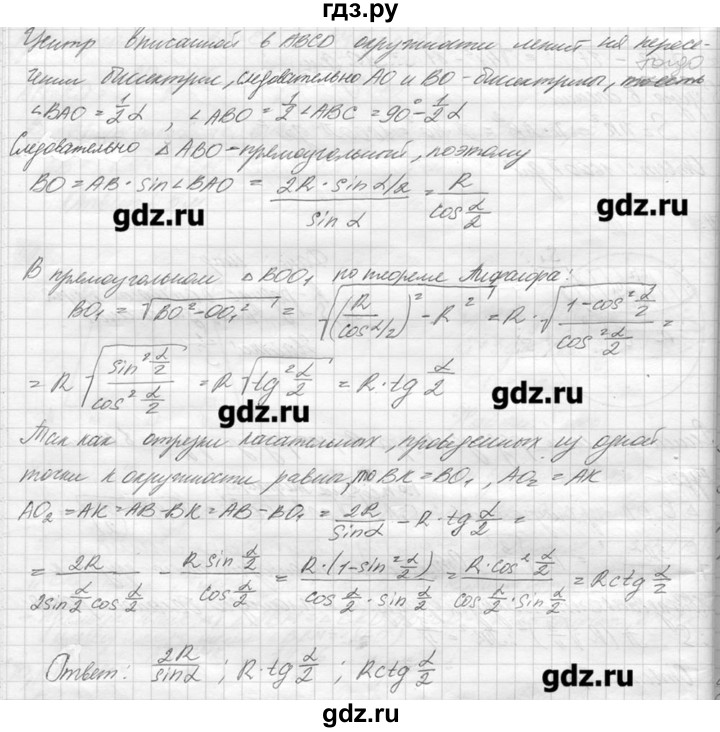 гдз.ру
Центр вписанной в ABCD окружности лежит на пересе-
чении биссектрис, следовательно AO и BO - биссектрисы, тогда
∠BAO = 1/2 α, ∠ABO = 1/2 ∠ABC = 90° - 1/2 α
Следовательно △ABO - прямоугольный, поэтому
BO = AB · sin∠BAO = 2R · sin α/2 / sin α = R / cos α/2
gdz.ru gdz.ru
В прямоугольном △BOO₁ по теореме Пифагора:
BO₁ = √(BO² - OO₁²) = √((R / cos α/2)² - R²) = R · √((1 - cos² α/2) / cos² α/2) =
= R √(sin² α/2 / cos² α/2) = R √(tg² α/2) = R · tg α/2
gdz.ru gdz.ru
Так как отрезки касательных, проведенных из одной
точки к окружности равны, то BK = BO₁, AO₂ = AK
AO₂ = AK = AB - BK = AB - BO₁ = 2R / sin α - R · tg α/2 =
= 2R / (2 sin α/2 cos α/2) - R sin α/2 / cos α/2 = R · (1 - sin² α/2) / (cos α/2 · sin α/2) = R · cos² α/2 / (cos α/2 · sin α/2) = R ctg α/2
Ответ: 2R / sin α ; R · tg α/2 ; R ctg α/2
gdz.ru gdz.ru
gdz.ru